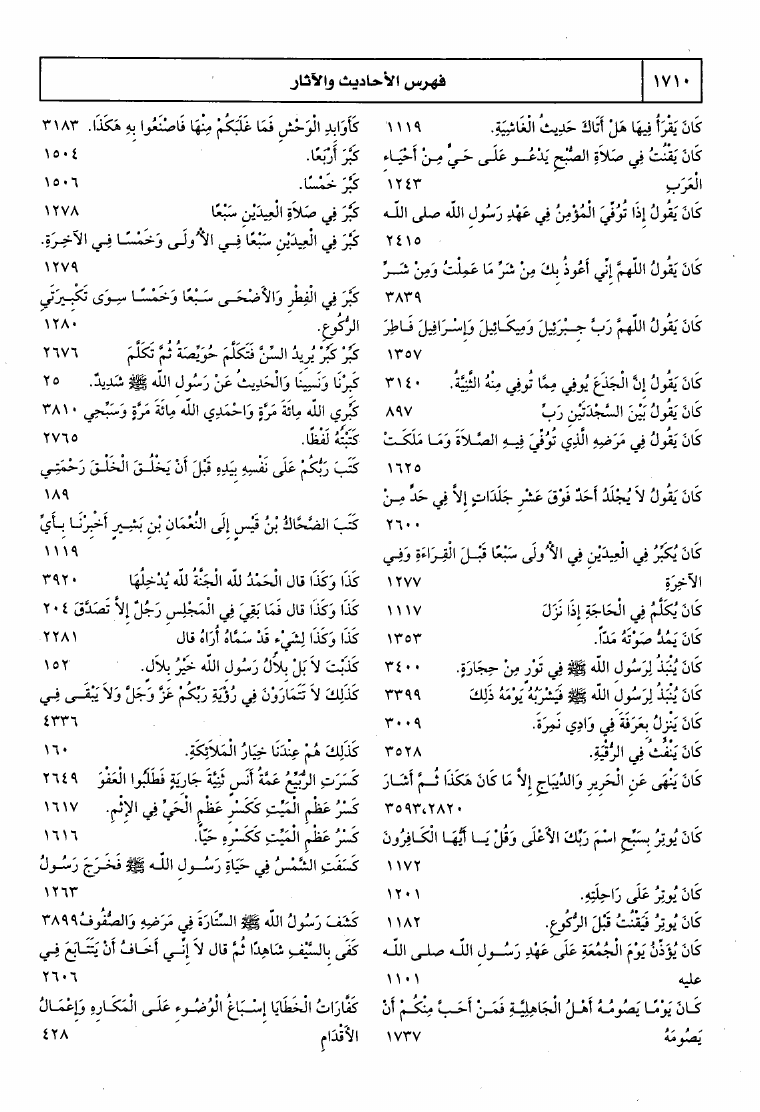 ١٧١٠
فهرس الأحاديث والآثار
كَانَ يَقْرَأُ فِيهَا هَلْ أَتَاكَ حَدِيثُ الْغَاشِيَةِ. ١١١٩
كَانَ يَقْنُتُ فِي صَلَاةِ الصُّبْحِ يَدْعُو عَلَى حَيٍّ مِنْ أَحْيَاءِ
الْعَرَبِ ١٢٤٣
كَانَ يَقُولُ إِذَا تُوُفِّيَ الْمُؤْمِنُ فِي عَهْدِ رَسُولِ الله صلى الله
٢٤١٥
كَانَ يَقُولُ اللهمَّ إِنِّي أَعُوذُ بِكَ مِنْ شَرِّ مَا عَمِلْتُ وَمِنْ شَرِّ
٣٨٣٩
كَانَ يَقُولُ اللهمَّ رَبَّ جِبْرَئِيلَ وَمِيكَائِيلَ وَإِسْرَافِيلَ فَاطِرَ
١٣٥٧
كَانَ يَقُولُ إِنَّ الْجَذَعَ يُوفِي مِمَّا تُوفِي مِنْهُ الثَّنِيَّةُ. ٣١٤٠
كَانَ يَقُولُ بَيْنَ السَّجْدَتَيْنِ رَبِّ ٨٩٧
كَانَ يَقُولُ فِي مَرَضِهِ الَّذِي تُوُفِّيَ فِيهِ الصَّلاَةَ وَمَا مَلَكَتْ
١٦٢٥
كَانَ يَقُولُ لاَ يُجْلَدُ أَحَدٌ فَوْقَ عَشْرِ جَلَدَاتٍ إِلاَّ فِي حَدٍّ مِنْ
٢٦٠٠
كَانَ يُكَبِّرُ فِي الْعِيدَيْنِ فِي الأُولَى سَبْعًا قَبْلَ الْقِرَاءَةِ وَفِي
الآخِرَةِ ١٢٧٧
كَانَ يُكَلَّمُ فِي الْحَاجَةِ إِذَا نَزَلَ ١١١٧
كَانَ يَمُدُّ صَوْتَهُ مَدًّا. ١٣٥٣
كَانَ يُنْبَذُ لِرَسُولِ الله ﷺ فِي تَوْرٍ مِنْ حِجَارَةٍ. ٣٤٠٠
كَانَ يُنْبَذُ لِرَسُولِ الله ﷺ فَيَشْرَبُهُ يَوْمَهُ ذَلِكَ ٣٣٩٩
كَانَ يَنْزِلُ بِعَرَفَةَ فِي وَادِي نَمِرَةَ. ٣٠٠٩
كَانَ يَنْفُثُ فِي الرُّقْيَةِ. ٣٥٢٨
كَانَ يَنْهَى عَنِ الْحَرِيرِ وَالدِّيبَاجِ إِلاَّ مَا كَانَ هَكَذَا ثُمَّ أَشَارَ
٣٥٩٣،٢٨٢٠
كَانَ يُوتِرُ بِسَبِّحِ اسْمَ رَبِّكَ الأَعْلَى وَقُلْ يَا أَيُّهَا الْكَافِرُونَ
١١٧٢
كَانَ يُوتِرُ عَلَى رَاحِلَتِهِ. ١٢٠١
كَانَ يُوتِرُ فَيَقْنُتُ قَبْلَ الرُّكُوعِ. ١١٨٢
كَانَ يُؤَذَّنُ يَوْمَ الْجُمُعَةِ عَلَى عَهْدِ رَسُولِ الله صلى الله
عليه ١١٠١
كَانَ يَوْمًا يَصُومُهُ أَهْلُ الْجَاهِلِيَّةِ فَمَنْ أَحَبَّ مِنْكُمْ أَنْ
يَصُومَهُ ١٧٣٧
كَأَوَابِدِ الْوَحْشِ فَمَا غَلَبَكُمْ مِنْهَا فَاصْنَعُوا بِهِ هَكَذَا. ٣١٨٣
كَبَّرَ أَرْبَعًا. ١٥٠٤
كَبَّرَ خَمْسًا. ١٥٠٦
كَبَّرَ فِي صَلاَةِ الْعِيدَيْنِ سَبْعًا ١٢٧٨
كَبَّرَ فِي الْعِيدَيْنِ سَبْعًا فِي الأُولَى وَخَمْسًا فِي الآخِرَةِ.
١٢٧٩
كَبَّرَ فِي الْفِطْرِ وَالأَضْحَى سَبْعًا وَخَمْسًا سِوَى تَكْبِيرَتَيِ
الرُّكُوعِ. ١٢٨٠
كَبِّرْ كَبِّرْ يُرِيدُ السِّنَّ فَتَكَلَّمَ حُوَيِّصَةُ ثُمَّ تَكَلَّمَ ٢٦٧٦
كَبِرْنَا وَنَسِينَا وَالْحَدِيثُ عَنْ رَسُولِ الله ﷺ شَدِيدٌ. ٢٥
كَبِّرِي الله مِائَةَ مَرَّةٍ وَاحْمَدِي الله مِائَةَ مَرَّةٍ وَسَبِّحِي ٣٨١٠
كَتَبْتُهُ لَفْظًا. ٢٧٦٥
كَتَبَ رَبُّكُمْ عَلَى نَفْسِهِ بِيَدِهِ قَبْلَ أَنْ يَخْلُقَ الْخَلْقَ رَحْمَتِي
١٨٩
كَتَبَ الضَّحَّاكُ بْنُ قَيْسٍ إِلَى النُّعْمَانِ بْنِ بَشِيرٍ أَخْبِرْنَا بِأَيِّ
١١١٩
كَذَا وَكَذَا قال الْحَمْدُ لله الْجَنَّةُ لله يُدْخِلُهَا ٣٩٢٠
كَذَا وَكَذَا قال فَمَا بَقِيَ فِي الْمَجْلِسِ رَجُلٌ إِلاَّ تَصَدَّقَ ٢٠٤
كَذَا وَكَذَا لِشَيْءٍ قَدْ سَمَّاهُ أُرَاهُ قال ٢٢٨١
كَذَبْتَ لاَ بَلْ بِلاَلُ رَسُولِ الله خَيْرُ بِلاَلٍ. ١٥٢
كَذَلِكَ لاَ تَتَمَارَوْنَ فِي رُؤْيَةِ رَبِّكُمْ عَزَّ وَجَلَّ وَلاَ يَبْقَى فِي
٤٣٣٦
كَذَلِكَ هُمْ عِنْدَنَا خِيَارُ الْمَلاَئِكَةِ. ١٦٠
كَسَرَتِ الرُّبَيِّعُ عَمَّةُ أَنَسٍ ثَنِيَّةَ جَارِيَةٍ فَطَلَبُوا الْعَفْوَ ٢٦٤٩
كَسْرُ عَظْمِ الْمَيِّتِ كَكَسْرِ عَظْمِ الْحَيِّ فِي الإِثْمِ. ١٦١٧
كَسْرُ عَظْمِ الْمَيِّتِ كَكَسْرِهِ حَيًّا. ١٦١٦
كَسَفَتِ الشَّمْسُ فِي حَيَاةِ رَسُولِ الله ﷺ فَخَرَجَ رَسُولُ
١٢٦٣
كَشَفَ رَسُولُ الله ﷺ السِّتَارَةَ فِي مَرَضِهِ وَالصُّفُوفُ ٣٨٩٩
كَفَى بِالسَّيْفِ شَاهِدًا ثُمَّ قال لاَ إِنِّي أَخَافُ أَنْ يَتَتَايَعَ فِي
٢٦٠٦
كَفَّارَاتُ الْخَطَايَا إِسْبَاغُ الْوُضُوءِ عَلَى الْمَكَارِهِ وَإِعْمَالُ
الأَقْدَامِ ٤٢٨